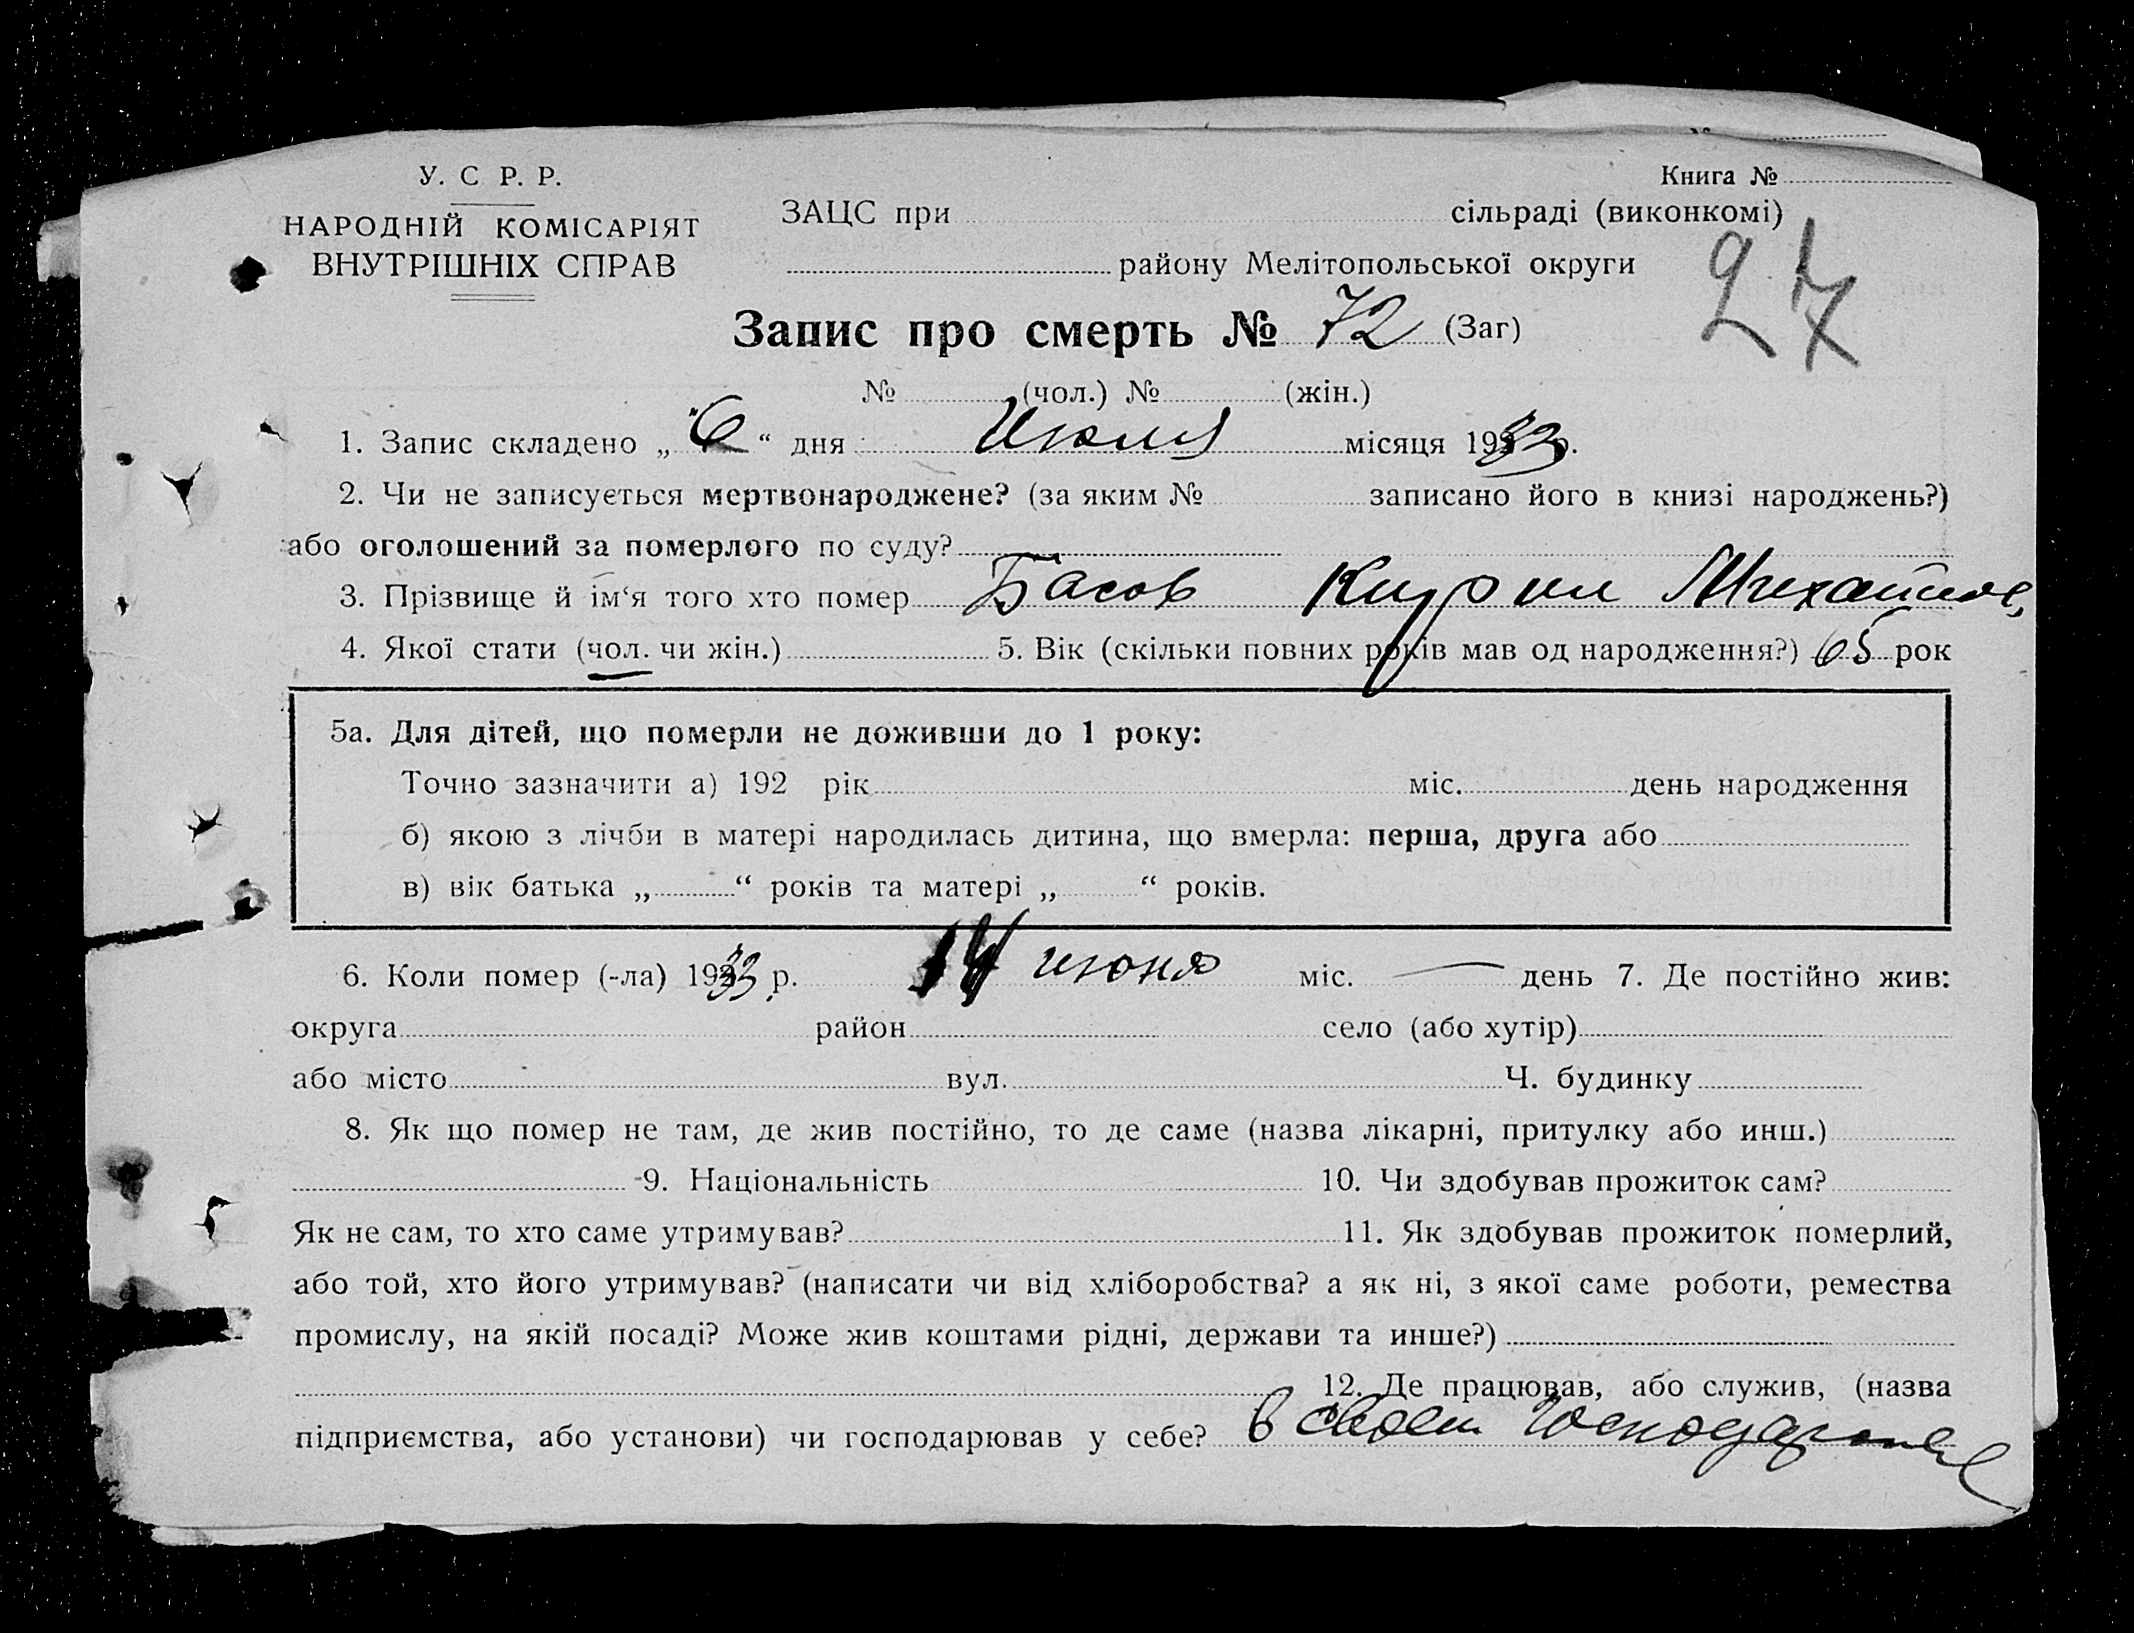 У. С Р. Р.
НАРОДНІЙ КОМІСАРІЯТ
ВНУТРІШНІХ СПРАВ
Книга №
ЗАЦС при сільраді (виконкомі)
району Мелітопольської округи
27
Запис про смерть № 72 (Заг)
№ (чол.) № (жін.)
1. Запис складено „ 6 “ дня Июля місяця 1933 р.
2. Чи не записується мертвонароджене? (за яким № записано його в книзі народжень?)
або оголошений за померлого по суду?
3. Прізвище й ім‘я того хто помер Басов Кирил Михайлов,
4. Якої стати (чол. чи жін.) 5. Вік (скільки повних років мав од народження?) 65 рок
5а. Для дітей, що померли не доживши до 1 року:
Точно зазначити а) 192 рік міс. день народження
б) якою з лічби в матері народилась дитина, що вмерла: перша, друга або
в) вік батька „ “ років та матері „ “ років.
6. Коли помер (-ла) 1933 р. 14 июня міс. — день 7. Де постійно жив:
округа район село (або хутір)
або місто вул. Ч. будинку
8. Як що помер не там, де жив постійно, то де саме (назва лікарні, притулку або инш.)
9. Національність 10. Чи здобував прожиток сам?
Як не сам, то хто саме утримував? 11. Як здобував прожиток померлий,
або той, хто його утримував? (написати чи від хліборобства? а як ні, з якої саме роботи, ремества
промислу, на якій посаді? Може жив коштами рідні, держави та инше?)
12. Де працював, або служив, (назва
підприємства, або установи) чи господарював у себе? в своем